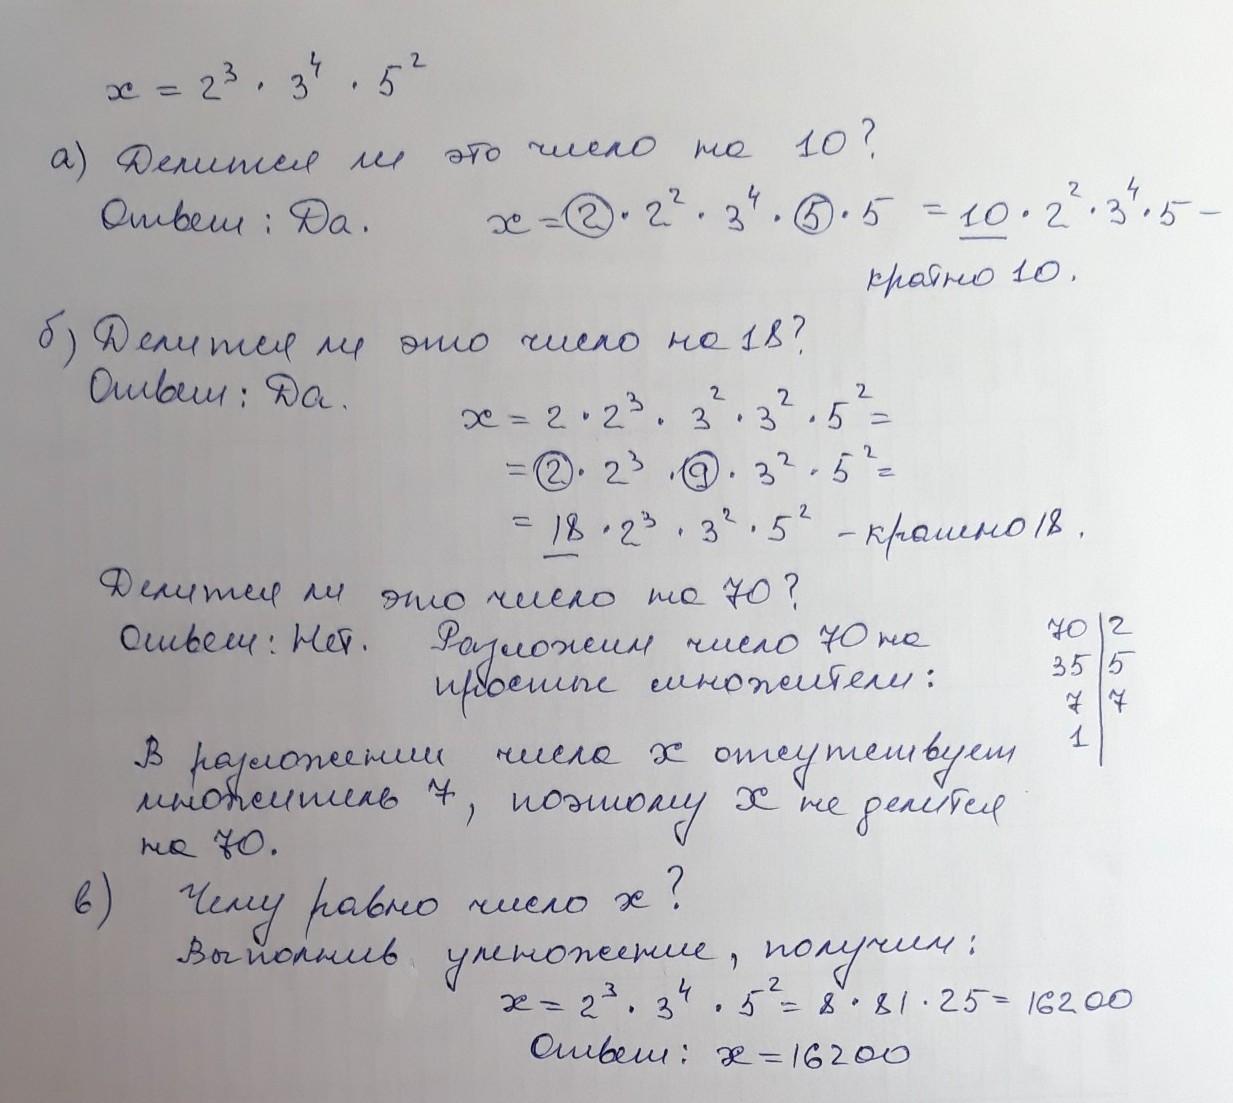 x = 2³ · 3⁴ · 5²
а) Делится ли это число на 10?
Ответ: Да. x = 2 · 2² · 3⁴ · 5 · 5 = 10 · 2² · 3⁴ · 5 –
кратно 10.
б) Делится ли это число на 18?
Ответ: Да.
x = 2 · 2³ · 3² · 3² · 5² =
= 2 · 2³ · 9 · 3² · 5² =
= 18 · 2³ · 3² · 5² – кратно 18.
Делится ли это число на 70?
Ответ: Нет. Разложим число 70 на
простые множители:
70 | 2
35 | 5
7 | 7
1 |
В разложении числа x отсутствует
множитель 7, поэтому x не делится
на 70.
в) Чему равно число x?
Выполнив умножение, получим:
x = 2³ · 3⁴ · 5² = 8 · 81 · 25 = 16200
Ответ: x = 16200